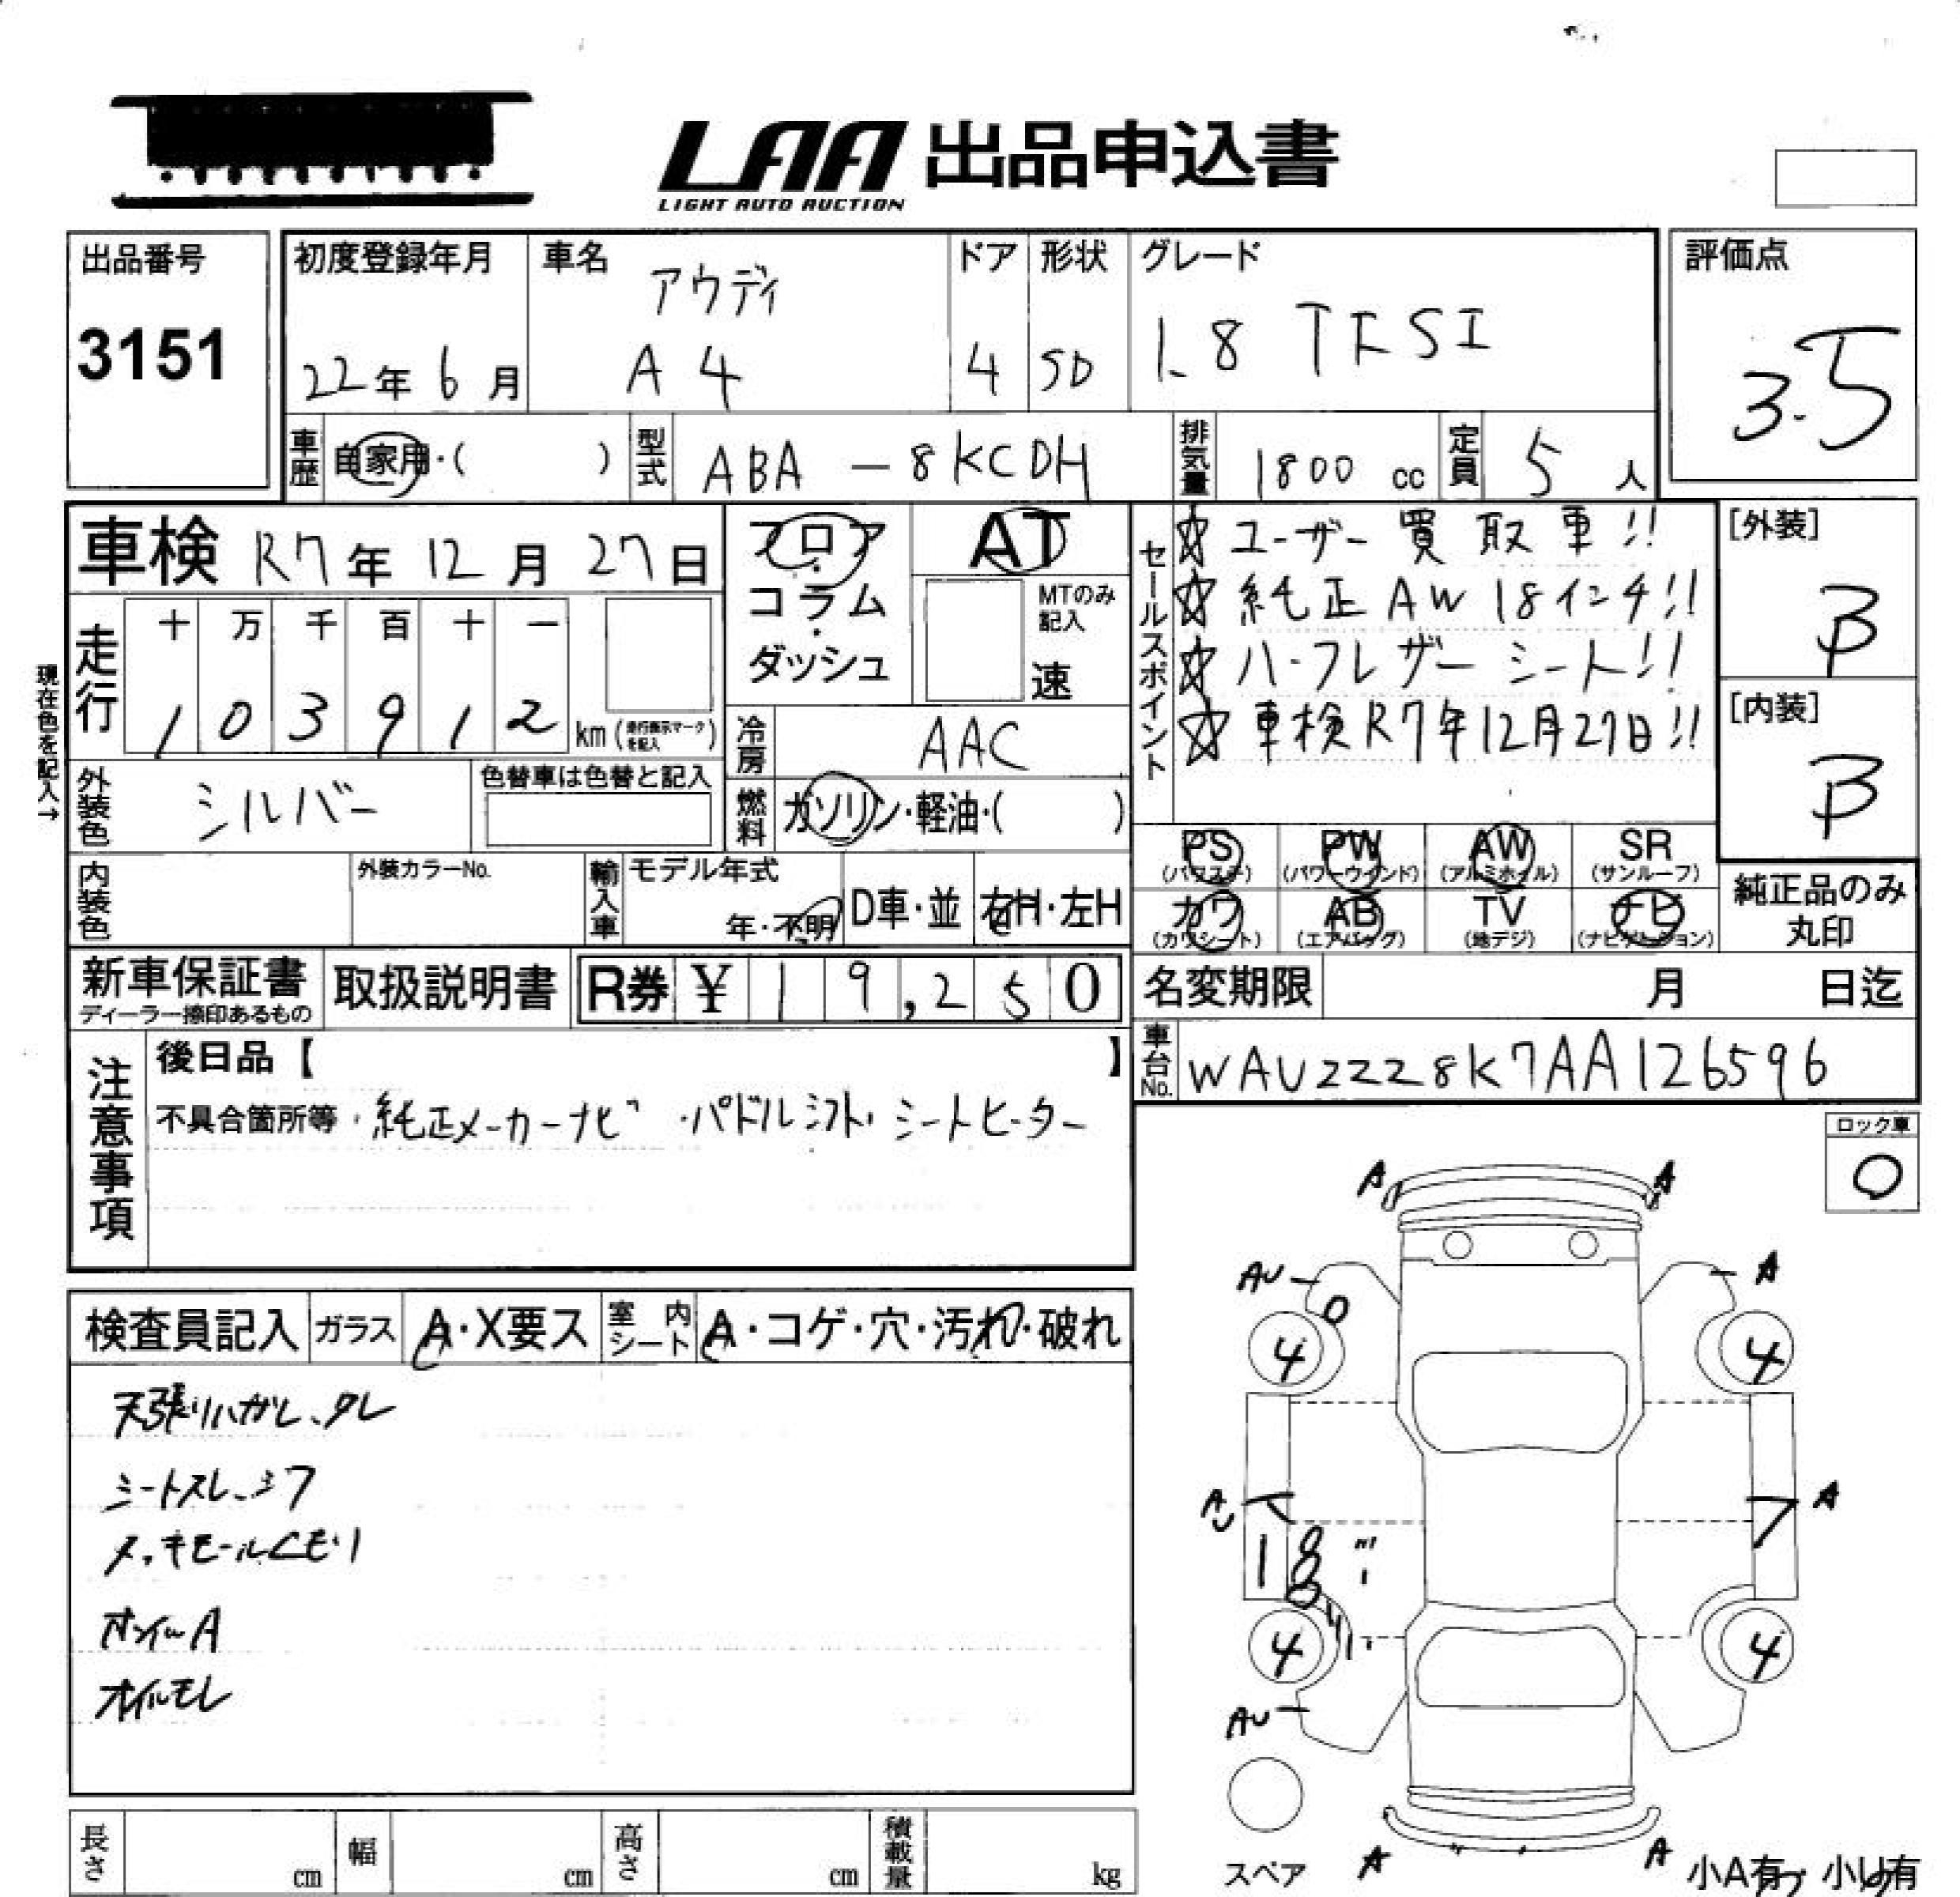 LAA 出品申込書
LIGHT AUTO AUCTION
出品番号
3151
初度登録年月
22年 6月
車名
アウディ
A 4
ドア
4
形状
SD
グレード
1.8 TFSI
評価点
3.5
車歴
自家用・( )
型式
ABA - 8KCDH
排気量
1800 cc
定員
5 人
車検 R7年 12月 27日
フロア・コラム・ダッシュ
AT
MTのみ記入
速
セールスポイント
☆ ユーザー買取車!!
☆ 純正AW 18インチ!!
☆ ハーフレザーシート!!
☆ 車検R7年12月27日!!
[外装]
B
[内装]
B
現在色を記入→
走行
十 万 千 百 十 一
1 0 3 9 1 2 km (走行表示マークを記入)
冷房
AAC
燃料
ガソリン・軽油・( )
外装色
シルバー
色替車は色替と記入
内装色
外装カラーNo.
輸入車
モデル年式
年・不明
D車・並
右H・左H
PS (パワステ)
PW (パワーウインド)
AW (アルミホイル)
SR (サンルーフ)
カワ (カワシート)
AB (エアバッグ)
TV (地デジ)
ナビ (ナビゲーション)
純正品のみ丸印
新車保証書
ディーラー捺印あるもの
取扱説明書
R券 ¥ 1 9,2 5 0
名変期限 月 日迄
車台No.
WAUZZZ8K7AA126596
注意事項
後日品【 】
不具合箇所等・純正メーカーナビ ・パドルシフト・シートヒーター
ロック車
O
検査員記入
ガラス
A・X要ス
室内シート
A・コゲ・穴・汚れ・破れ
天張りハガレ、タレ
シートスレ、シワ
メッキモールくもり
オイルモレ
A A
AU A
4 4
A
AU
18"
4 4
AU
スペア
A A
小A有 小U有
長さ cm
幅 cm
高さ cm
積載量 kg